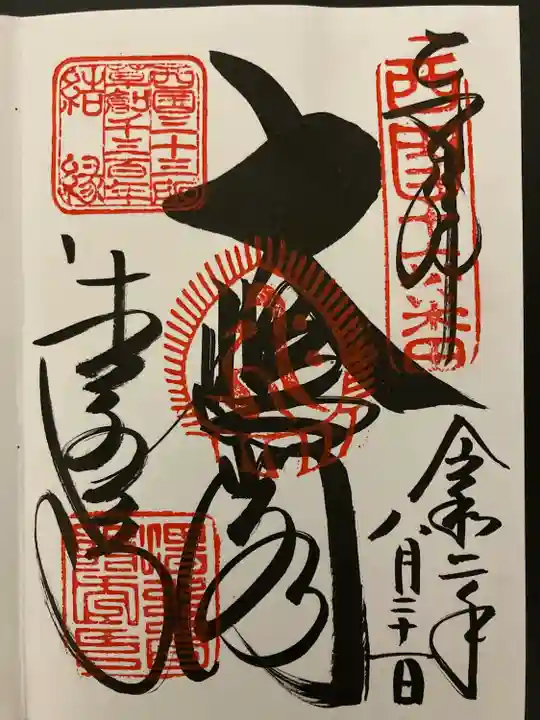 奉拝
西国十六番
令和二年
八月二十一日
大悲閣
西国三十三所
草創千三百年
結縁
清水寺